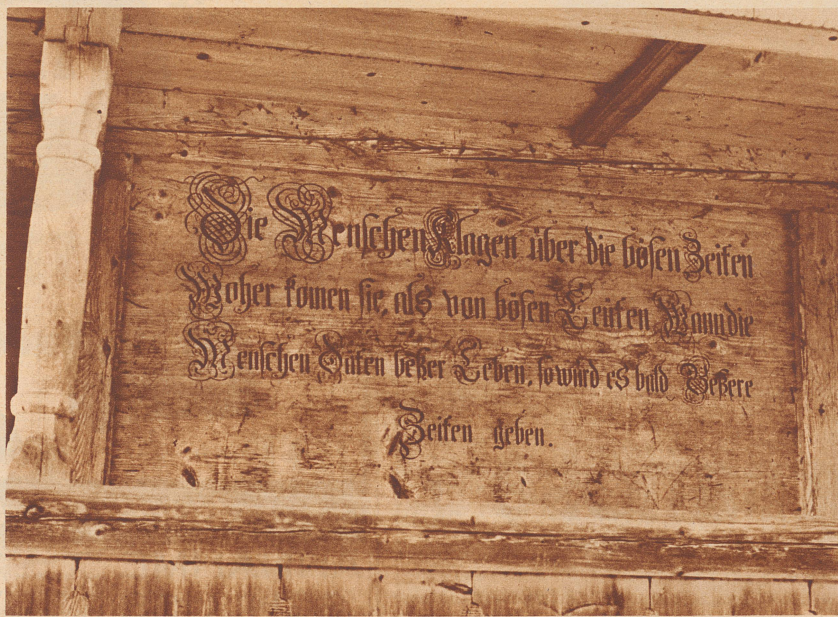 Die Menschen Klagen über die bösen Zeiten
Woher komen sie, als von bösen Leüten Wann die
Menschen Däten beßer Leben, so würd es bald Beßere
Zeiten geben.